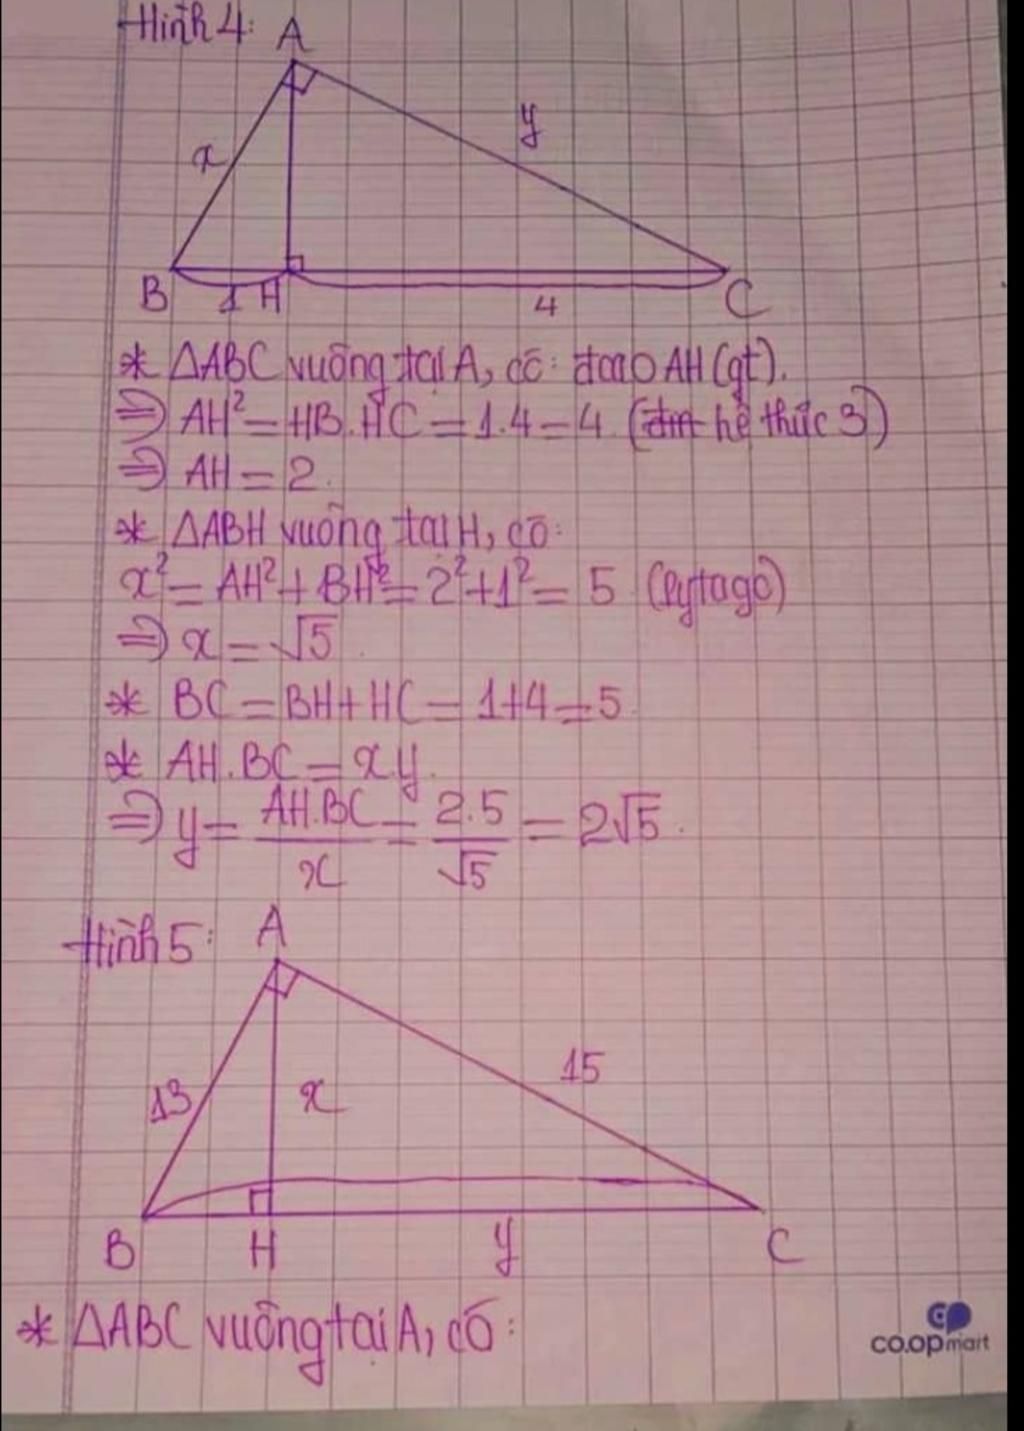 Hình 4:
A
x
y
B
1
H
4
C
* △ABC vuông tại A, có: đcao AH (gt).
⇒ AH² = HB.HC = 1.4 = 4 (hệ thức 3)
⇒ AH = 2.
* △ABH vuông tại H, có:
x² = AH² + BH² = 2² + 1² = 5 (Pytago)
⇒ x = √5.
* BC = BH + HC = 1 + 4 = 5
* AH.BC = x.y.
⇒ y = AH.BC / x = 2.5 / √5 = 2√5.
Hình 5:
A
13
x
15
B
H
y
C
* △ABC vuông tại A, có:
co.opmart